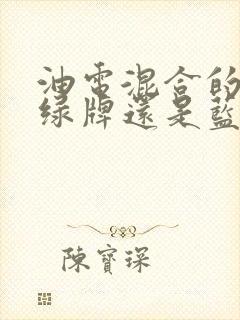 油電混合的
綠牌還是藍
陳寶琛